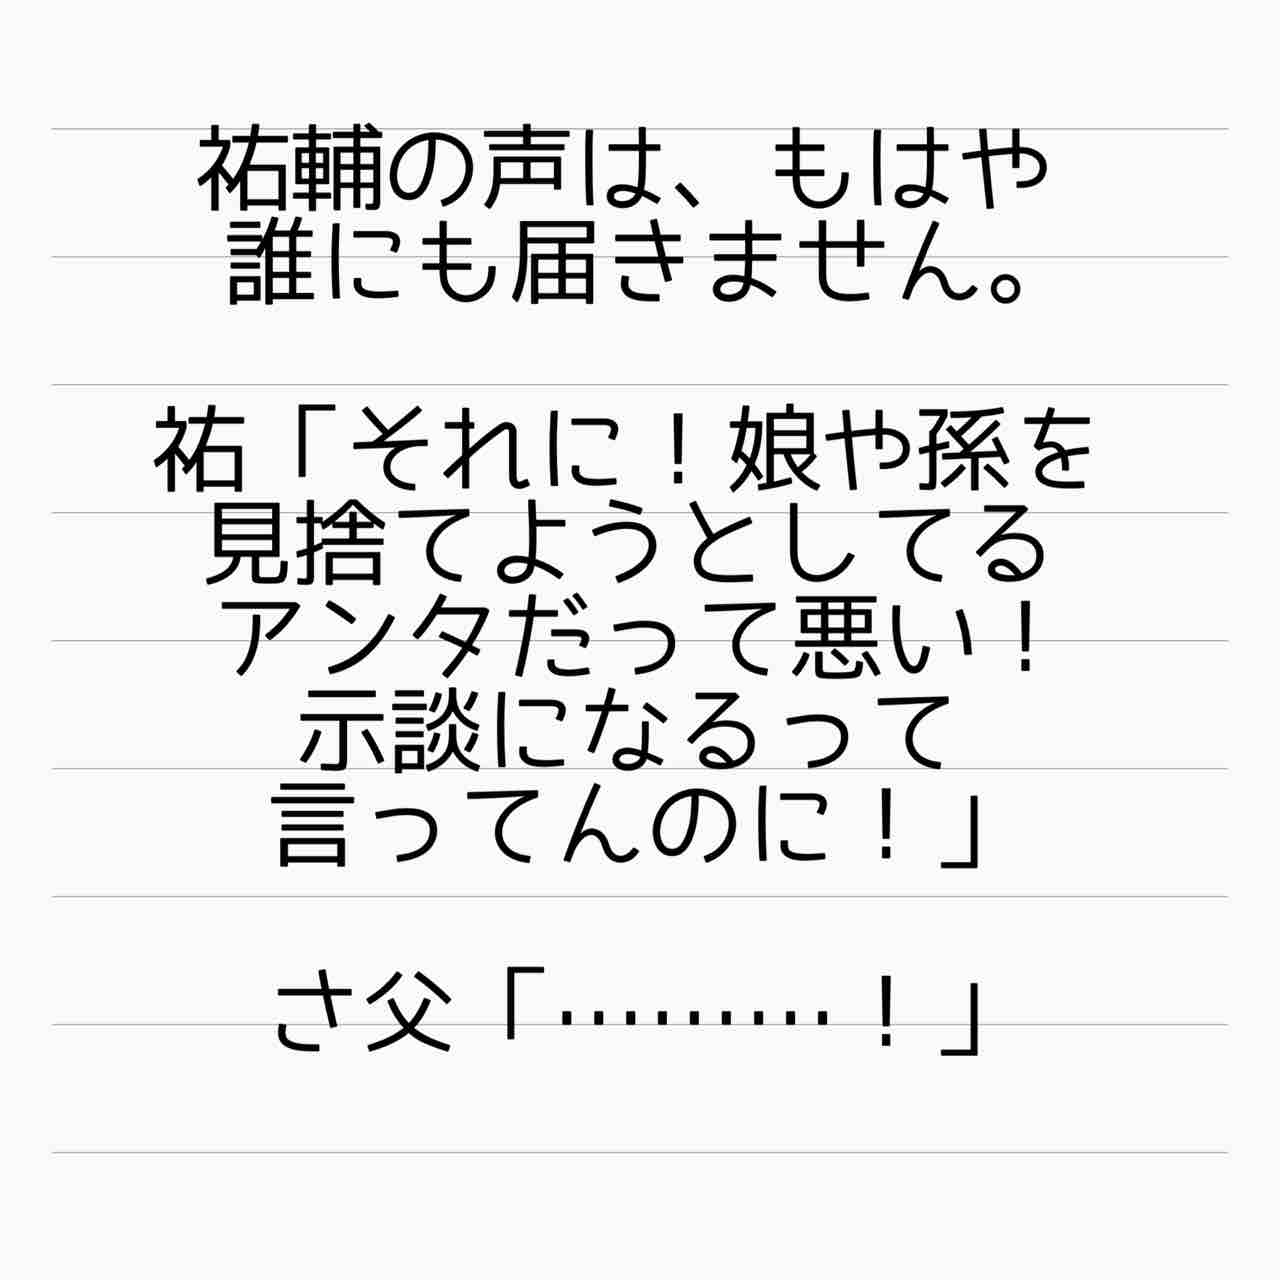 祐輔の声は、もはや
誰にも届きません。
祐「それに！娘や孫を
見捨てようとしてる
アンタだって悪い！
示談になるって
言ってんのに！」
さ父「………！」